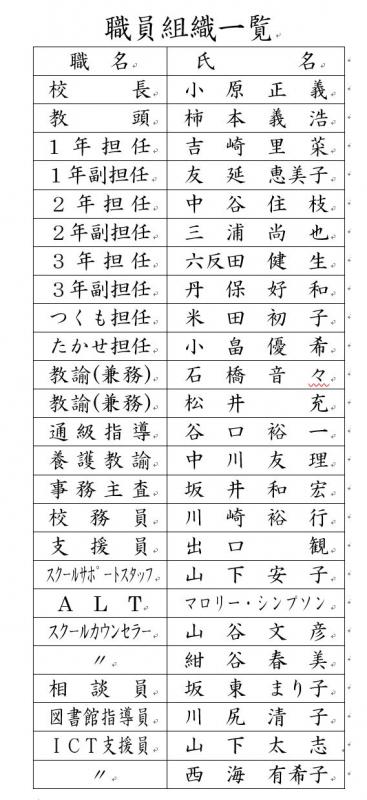 職員組織一覧
職名 氏名
校長 小原正義
教頭 柿本義浩
1年担任 吉崎里菜
1年副担任 友延恵美子
2年担任 中谷住枝
2年副担任 三浦尚也
3年担任 六反田健生
3年副担任 丹保好和
つくも担任 米田初子
たかせ担任 小畠優希
教諭(兼務) 石橋音々
教諭(兼務) 松井充
通級指導 谷口裕一
養護教諭 中川友理
事務主査 坂井和宏
校務員 川崎裕行
支援員 出口観
スクールサポートスタッフ 山下安子
ALT マロリー・シンプソン
スクールカウンセラー 山谷文彦
〃 紺谷春美
相談員 坂東まり子
図書館指導員 川尻清子
ICT支援員 山下太志
〃 西海有希子